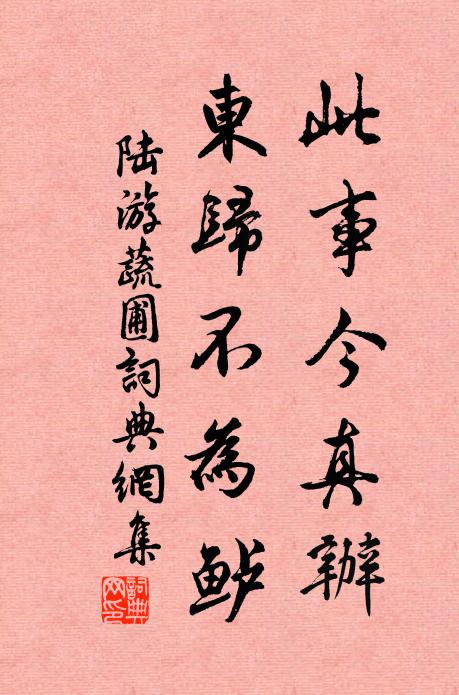 此事今真辦
東歸不為鲈
陆游蔬圃詞典網集
詞典网印